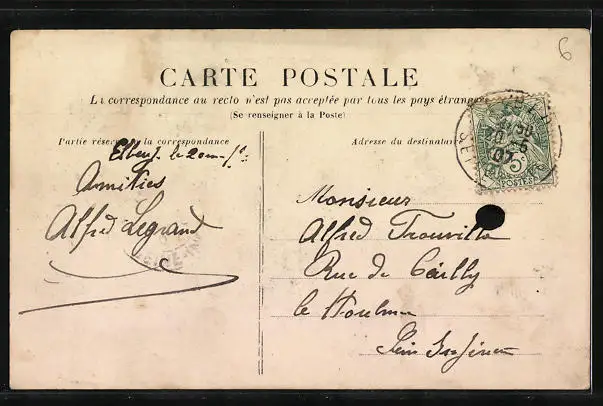 6
CARTE POSTALE
La correspondance au recto n'est pas acceptée par tous les pays étrangers
(Se renseigner à la Poste)
Partie réservée à la correspondance
Elbeuf le 20
Amitiés
Alfred Legrand
Adresse du destinataire
Monsieur
Alfred Trouville
Rue de Cailly
le Houlme
Seine Inférieure
07
5c
POSTES